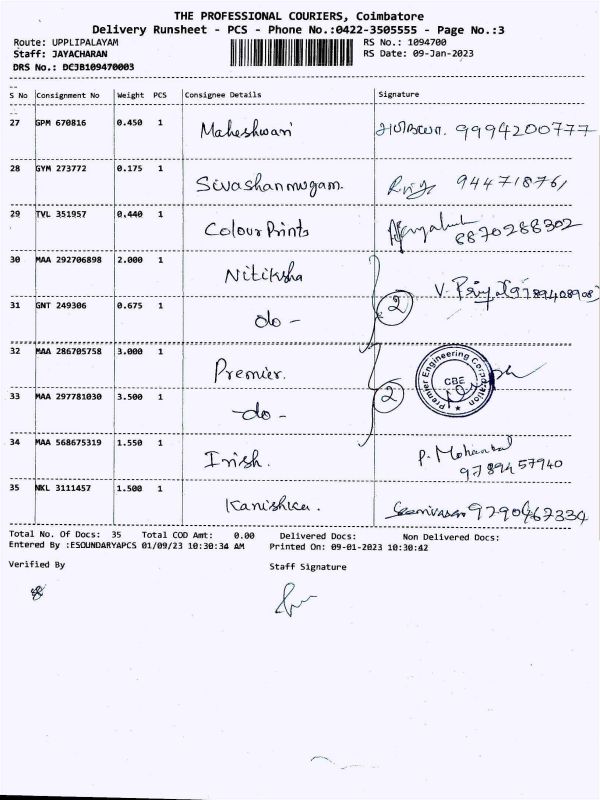 THE PROFESSIONAL COURIERS, Coimbatore
Delivery Runsheet - PCS - Phone No.:0422-3505555 - Page No.:3
Route: UPPLIPALAYAM RS No.: 1094700
Staff: JAYACHARAN RS Date: 09-Jan-2023
DRS No.: DCJB109470003
S No Consignment No Weight PCS Consignee Details Signature
27 GPM 670816 0.450 1 Maheshwari 9994200777
28 GYM 273772 0.175 1 Sivashanmugam. 944718761
29 TVL 351957 0.440 1 Colour Prints 8870288302
30 MAA 292706898 2.000 1 Nitiksha
31 GNT 249306 0.675 1 do - 2 V. Priya 9789408908
32 MAA 286705758 3.000 1 Premier. Premier Engineering Corporation CBE
33 MAA 297781030 3.500 1 -do- 2
34 MAA 568675319 1.550 1 Irish. P. Mohanlal 9789457940
35 NKL 3111457 1.500 1 Kanishka. Seenivasan 9790467334
Total No. Of Docs: 35 Total COD Amt: 0.00 Delivered Docs: Non Delivered Docs:
Entered By :ESOUNDARYAPCS 01/09/23 10:30:34 AM Printed On: 09-01-2023 10:30:42
Verified By Staff Signature